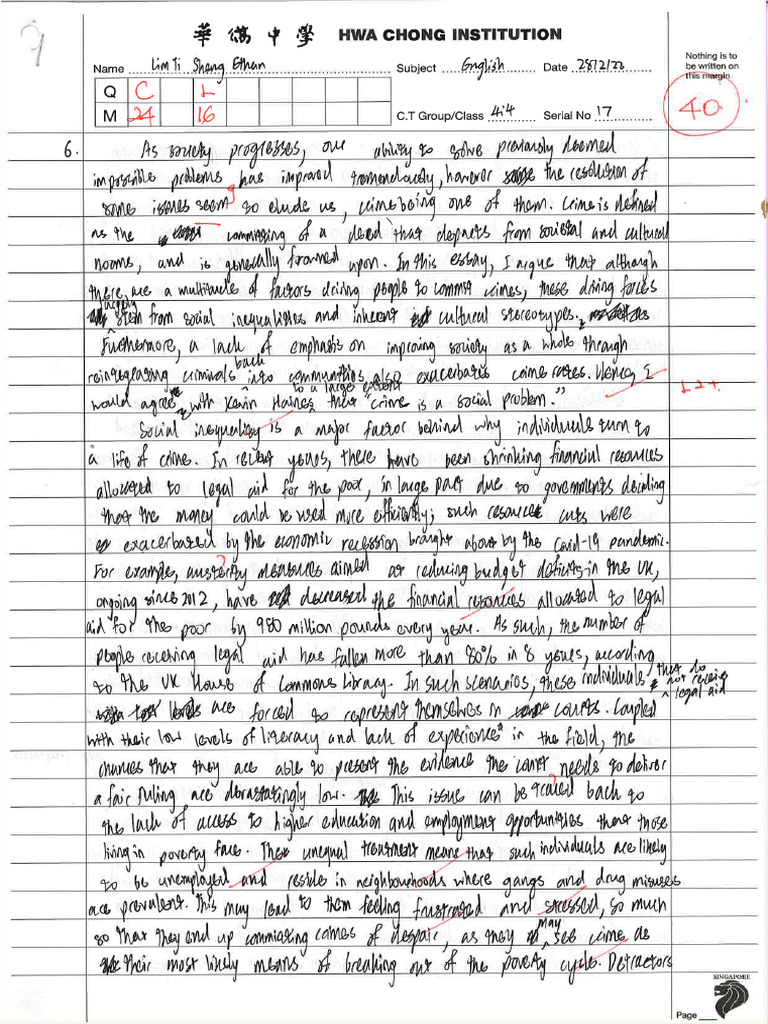 華僑中學 HWA CHONG INSTITUTION
Nothing is to
be written on
this margin
Name Lim Ti Sheng Ethan Subject English Date 28/2/22
Q C L
M 24 16
C.T Group/Class 4i4 Serial No 17
40
6. As society progresses, our ability to solve previously deemed
impossible problems has improved tremendously, however the resolution of
some issues seem to elude us, crime being one of them. Crime is defined
as the commissing of a deed that departs from societal and cultural
norms, and is generally frowned upon. In this essay, I argue that although
there are a multitude of factors driving people to commit crimes, these driving forces
largely stem from social inequalities and inherent cultural stereotypes.
Furthermore, a lack of emphasis on improving society as a whole through
reintegrating criminals back into communities also exacerbates crime rates. Hence, I
would agree with Kevin Haines to a large extent that "crime is a social problem."
L2+
Social inequality is a major factor behind why individuals turn to
a life of crime. In recent years, there have been shrinking financial resources
allocated to legal aid for the poor, in large part due to governments deciding
that the money could be used more efficiently; such resource cuts were
exacerbated by the economic recession brought about by the Covid-19 pandemic.
For example, austerity measures aimed at reducing budget deficits in the UK,
ongoing since 2012, have decreased the financial resources allocated to legal
aid for the poor by 950 million pounds every year. As such, the number of
people receiving legal aid has fallen more than 80% in 8 years, according
to the UK House of Commons Library. In such scenarios, these individuals that do not receive legal aid
are forced to represent themselves in courts. Coupled
with their low levels of literacy and lack of experience in the field, the
chances that they are able to present the evidence the court needs to deliver
a fair ruling are devastatingly low. This issue can be traced back to
the lack of access to higher education and employment opportunities that those
living in poverty face. Their unequal treatment means that such individuals are likely
to be unemployed and reside in neighbourhoods where gangs and drug misuses
are prevalent. This may lead to them feeling frustrated and stressed, so much
so that they end up commissing crimes of despair, as they may see crime as
their most likely means of breaking out of the poverty cycle. Detractors
SINGAPORE
Page